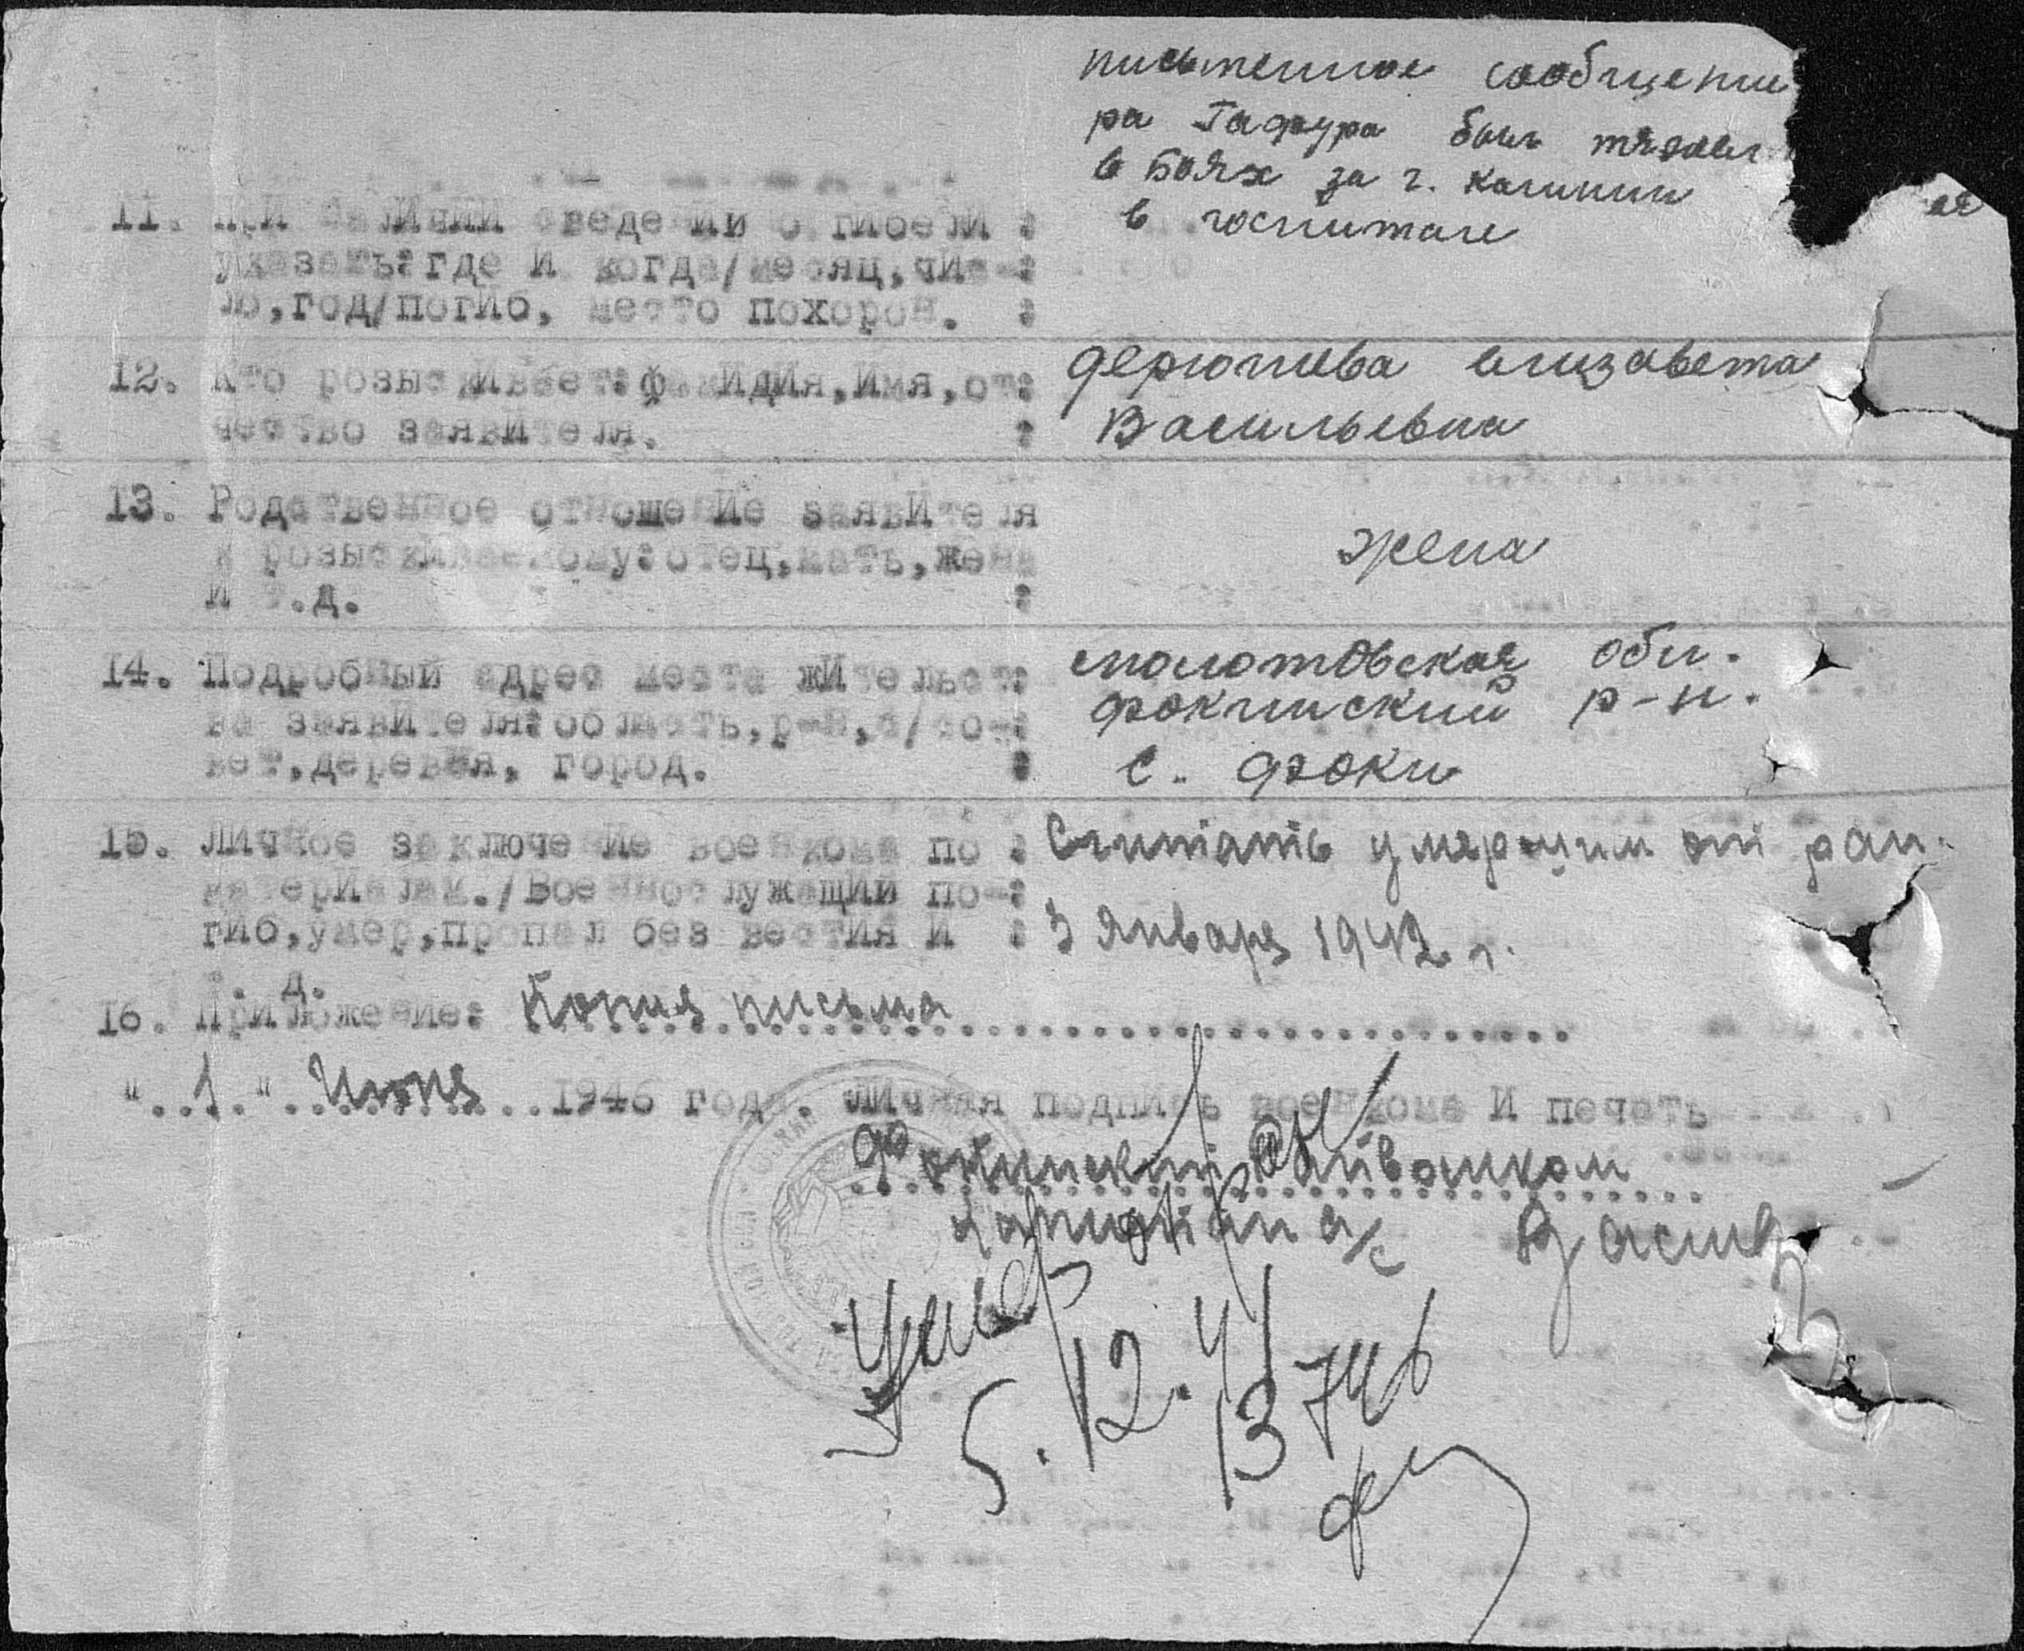 письменное сообщени
ра Гафура был тяжел
в Боях за г. Калинин
ая
в госпитале
11. При наличии сведений о гибели :
указать: где и когда/месяц, чис-:
ло, год/погиб, место похорон. :
12. Кто розыскивает: фамидия, имя, от:
чество заявителя. :
Дерюшева Елизавета
Васильевна
13. Родственное отношение заявителя
к розыскиваемому: отец, мать, жена
и т.д. :
жена
14. Подробный адрес места жительст:
ва заявителя: область, р-н, с/со-:
вет, деревня, город. :
Молотовская обл.
Фокинский р-н.
с. Фоки
15. Личное заключение военкома по :
материалам./Военнослужащий по-:
гиб, умер, пропал без вестия и :
т. д.
Считать умершим от ран.
3 Января 1942 г.
16. Приложение: Копия письма
"1" Июня 1946 года. Личная подпись военкома и печать
Фокинский Райвоенком
Капитан а/с
Умер от ран
5.12.41
13746